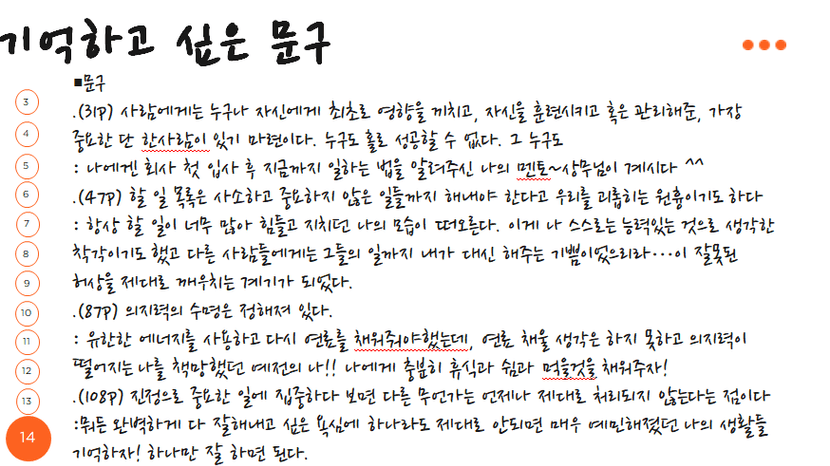 기억하고 싶은 문구
■문구
.(31P) 사람에게는 누구나 자신에게 최초로 영향을 끼치고, 자신을 훈련시키고 혹은 관리해준, 가장
중요한 단 한사람이 있기 마련이다. 누구도 홀로 성공할 수 없다. 그 누구도
: 나에겐 회사 첫 입사 후 지금까지 일하는 법을 알려주신 나의 멘토~상무님이 계시다 ^^
.(47P) 할 일 목록은 사소하고 중요하지 않은 일들까지 해내야 한다고 우리를 괴롭히는 원흉이기도 하다
: 항상 할 일이 너무 많아 힘들고 지치던 나의 모습이 떠오른다. 이게 나 스스로는 능력있는 것으로 생각한
착각이기도 했고 다른 사람들에게는 그들의 일까지 내가 대신 해주는 기쁨이었으리라…이 잘못된
허상을 제대로 깨우치는 계기가 되었다.
.(87P) 의지력의 수명은 정해져 있다.
: 유한한 에너지를 사용하고 다시 연료를 채워줘야했는데, 연료 채울 생각은 하지 못하고 의지력이
떨어지는 나를 책망했던 예전의 나!! 나에게 충분히 휴식과 쉼과 먹을것을 채워주자!
.(108P) 진정으로 중요한 일에 집중하다 보면 다른 무언가는 언제나 제대로 처리되지 않는다는 점이다
:뭐든 완벽하게 다 잘해내고 싶은 욕심에 하나라도 제대로 안되면 매우 예민해졌던 나의 생활들
기억하자! 하나만 잘 하면 된다.
3
4
5
6
7
8
9
10
11
12
13
14